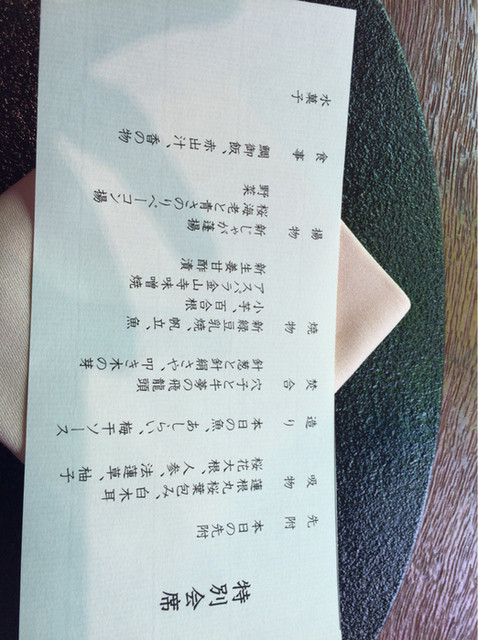 特別会席
先附
本日の先附
吸物
蓮根丸桜葉包み、白木耳
桜花大根、人参、法蓮草、柚子
造り
本日の魚、あしらい、梅干ソース
焚合
穴子と牛蒡の飛龍頭
針葱と針絹さや、叩き木の芽
焼物
新緑豆乳焼、帆立、魚
小芋、百合根
アスパラ金山寺味噌焼
新生姜甘酢漬
揚物
新じゃが蓮揚
桜海老と青さのりベーコン揚
野菜
食事
鯛御飯、赤出汁、香の物
水菓子